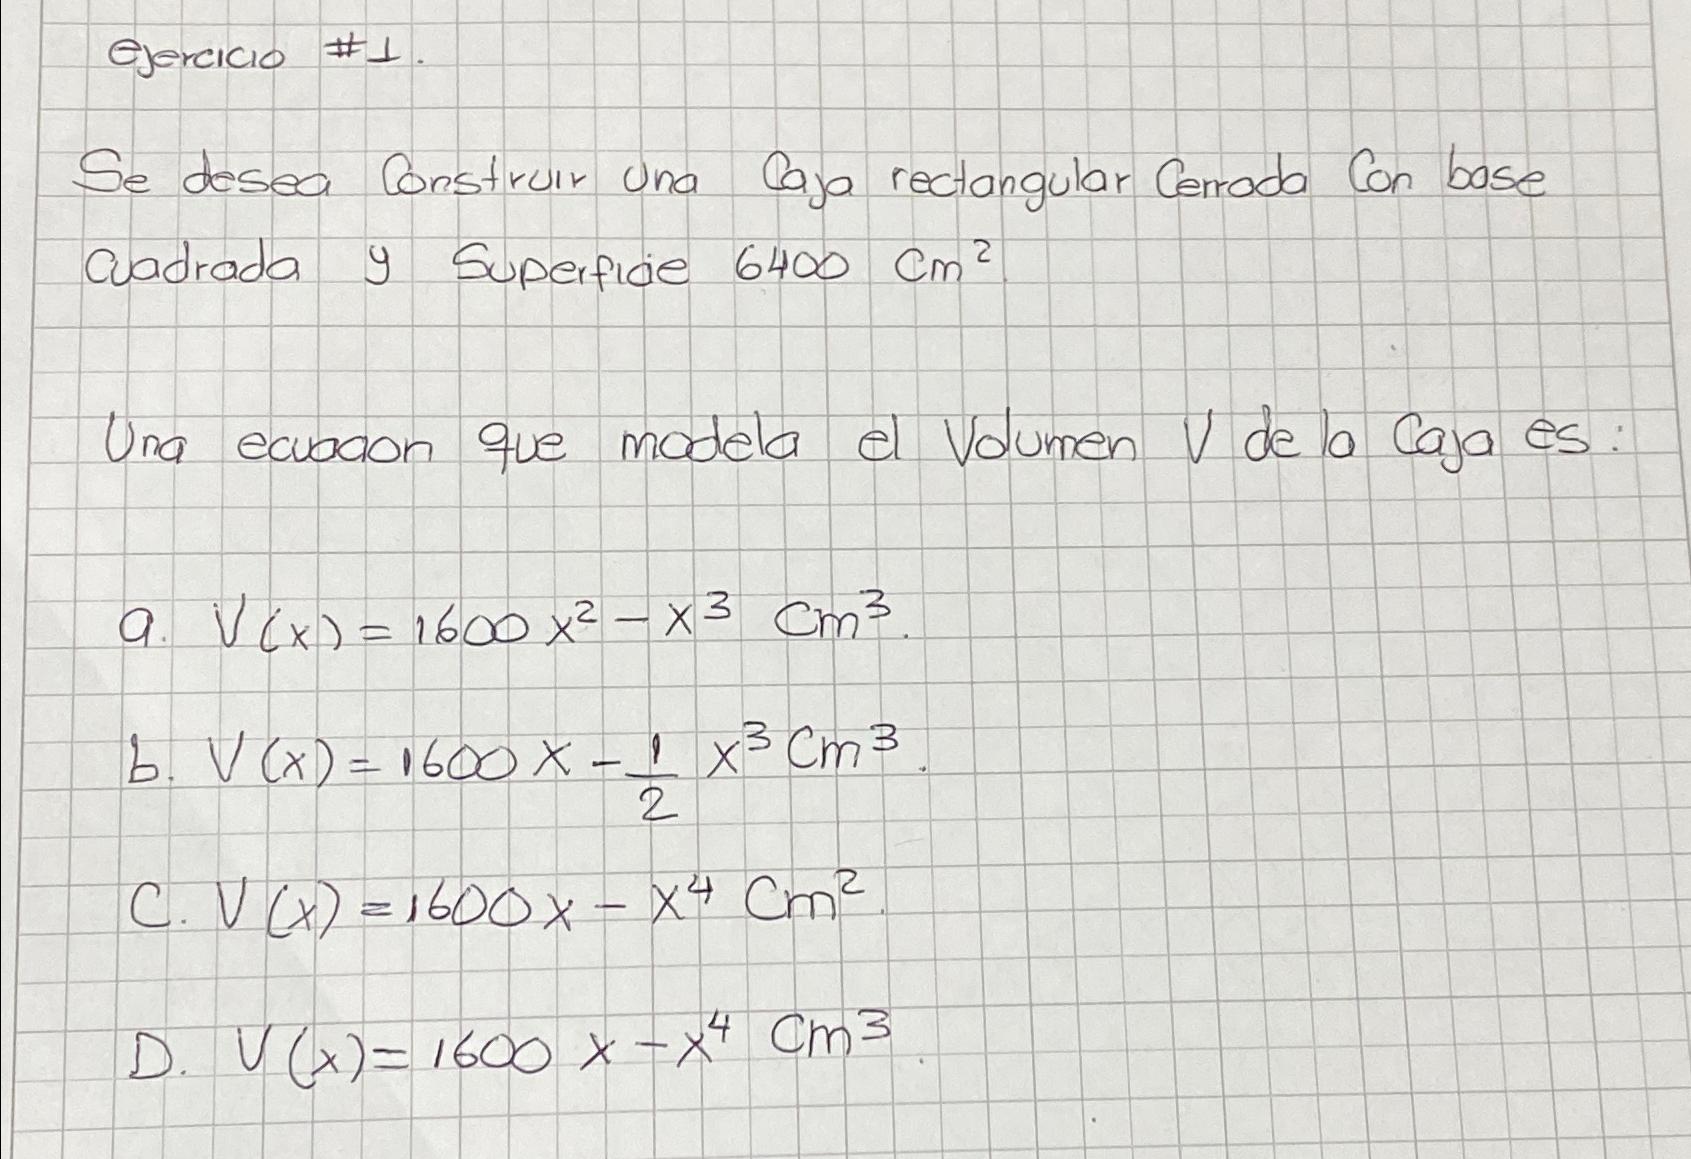 ejercicio #1.
Se desea Construir una Caja rectangular Cerrada Con base
cuadrada y Superficie 6400 Cm²
Una ecuacion que modela el Volumen V de la Caja es:
a. V(x) = 1600x² - x³ Cm³.
b. V(x) = 1600x - 1/2 x³ Cm³.
C. V(x) = 1600x - x⁴ Cm².
D. V(x) = 1600x - x⁴ Cm³.